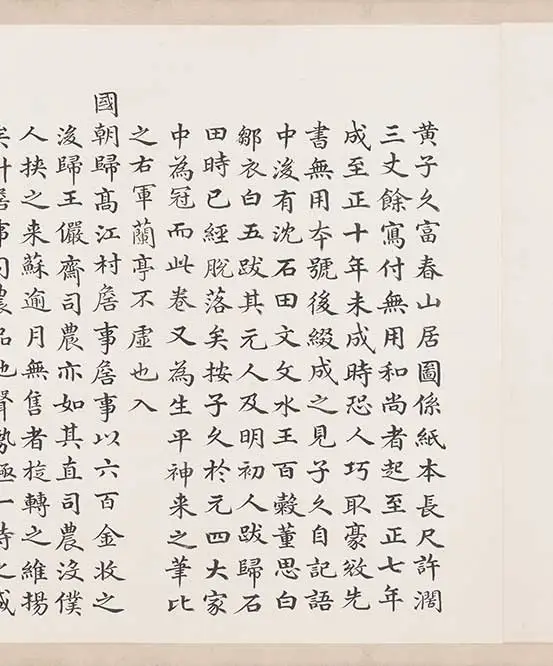 黄子久富春山居圖係紙本長尺許濶
三丈餘寫付無用和尚者起至正七年
成至正十年未成時恐人巧取豪敓先
書無用本號後綴成之見子久自記語
中後有沈石田文文水王百穀董思白
鄒衣白五跋其元人及明初人跋歸石
田時已經脫落矣按子久於元四大家
中為冠而此卷又為生平神来之筆比
之右軍蘭亭不虛也入
國朝歸髙江村詹事詹事以六百金收之
後歸王儼齋司農亦如其直司農沒僕
人挾之来蘇逾月無售者旋轉之維揚
矣計詹事司農品地聲勢極一時之盛